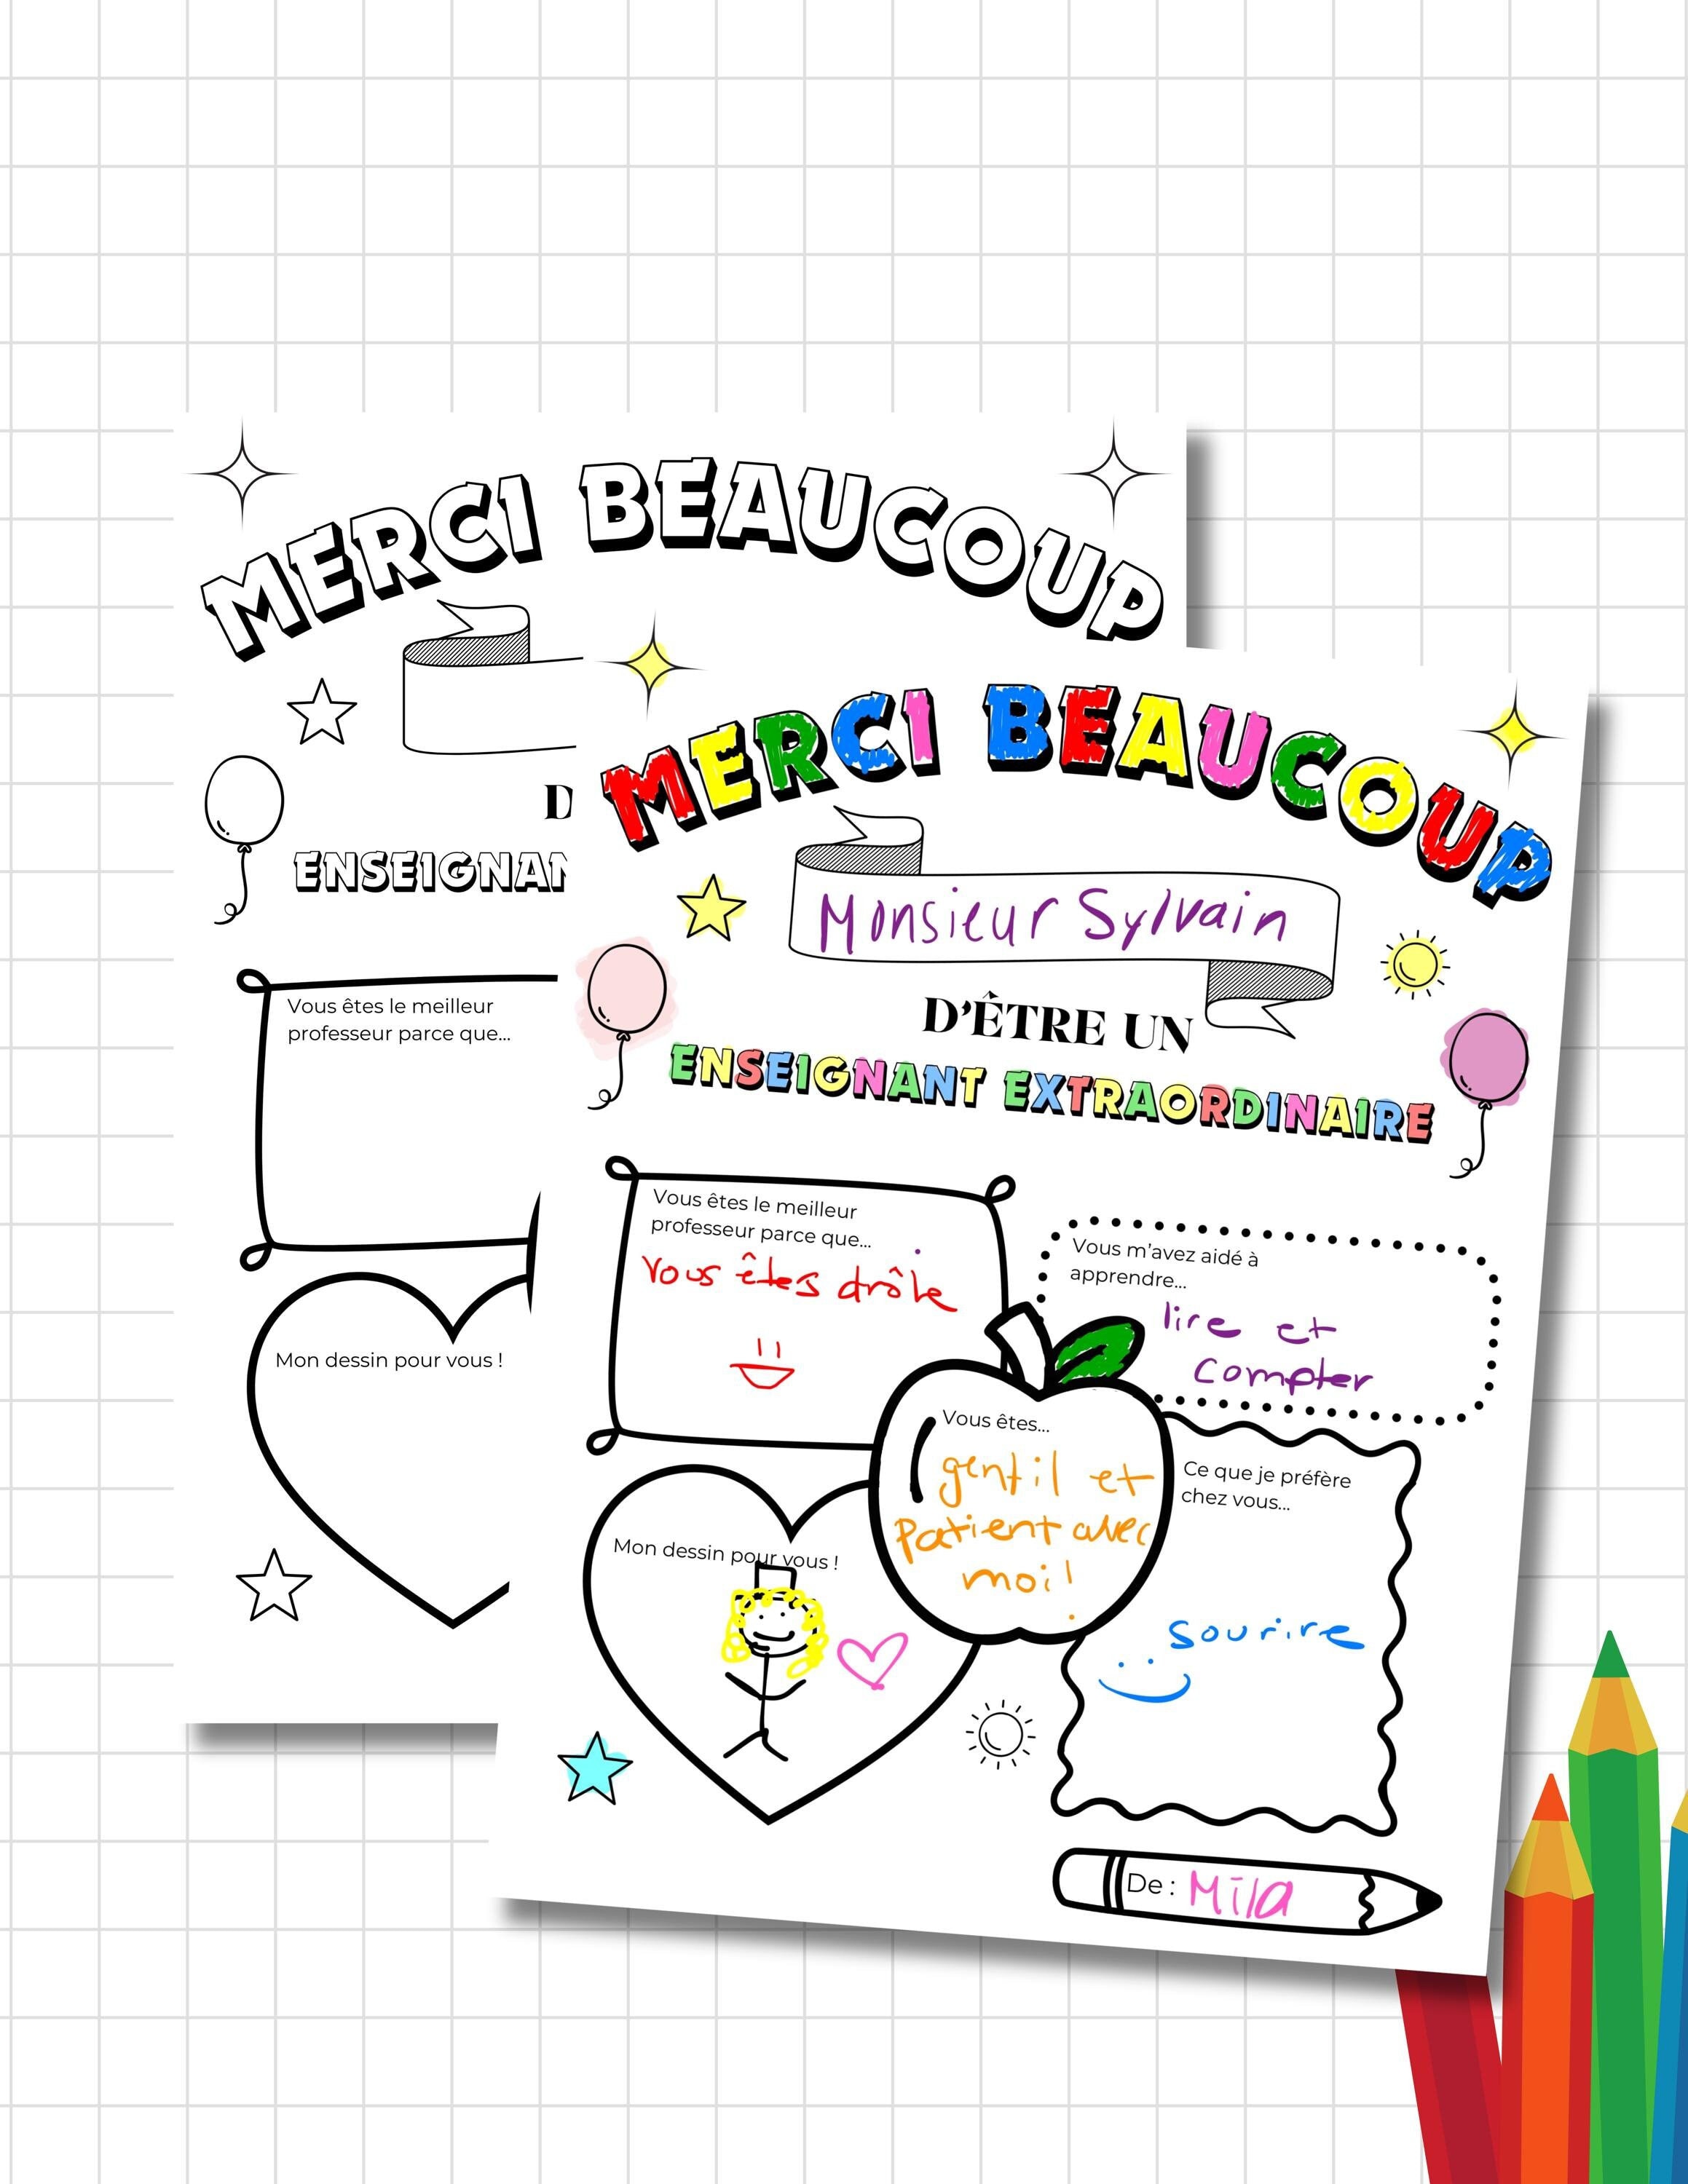 MERCI BEAUCOUP
D
ENSEIGNAN
Vous êtes le meilleur
professeur parce que...
Mon dessin pour vous !
MERCI BEAUCOUP
Monsieur Sylvain
D'ÊTRE UN
ENSEIGNANT EXTRAORDINAIRE
Vous êtes le meilleur
professeur parce que...
vous êtes drôle
Vous m'avez aidé à
apprendre...
lire et
compter
Vous êtes...
gentil et
Patient avec
moi!
Ce que je préfère
chez vous...
sourire
Mon dessin pour vous !
De : Mila